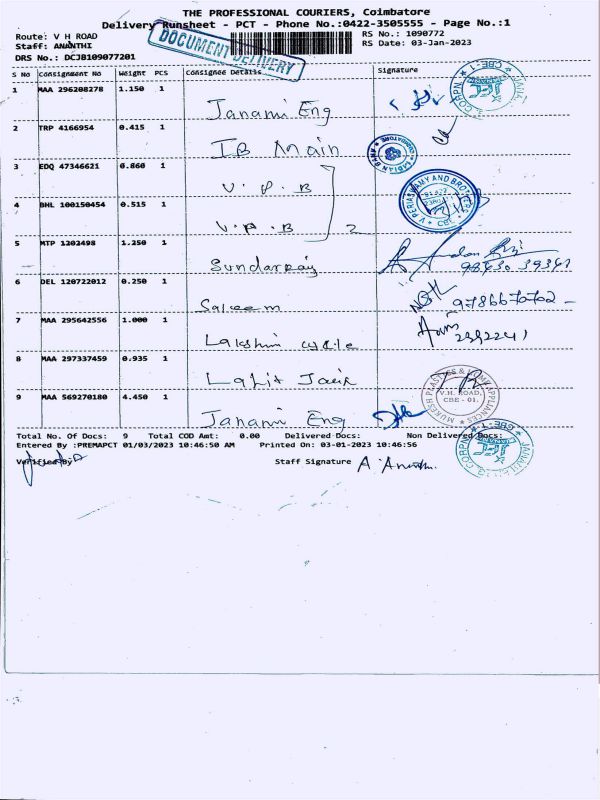 THE PROFESSIONAL COURIERS, Coimbatore
Delivery Runsheet - PCT - Phone No.:0422-3505555 - Page No.:1
Route: V H ROAD
RS No.: 1090772
Staff: ANANTHI
DOCUMENT DELIVERY
RS Date: 03-Jan-2023
DRS No.: DCJB109077201
S No Consignment No Weight PCS Consignee Details Signature
1 MAA 296208278 1.150 1 Janani Eng
2 TRP 4166954 0.415 1 IB Main
3 EDQ 47346621 0.860 1 V.P.B
4 BHL 100150454 0.515 1 V.P.B 2
V PERIASWAMY AND BROTHERS
CBE
5 MTP 1202498 1.250 1 Sundarraj
6 DEL 120722012 0.250 1 Saleem 9786670702
7 MAA 295642556 1.000 1 Lakshmi cycle
8 MAA 297337459 0.935 1 Lalit Jain
MUKESH PLASTICS & HOME APPLIANCES
V.H. ROAD,
CBE - 01.
9 MAA 569270180 4.450 1 Janani Eng
Total No. Of Docs: 9 Total COD Amt: 0.00 Delivered Docs: Non Delivered Docs:
Entered By :PREMAPCT 01/03/2023 10:46:50 AM Printed On: 03-01-2023 10:46:56
Verified By Staff Signature A. Ananthi